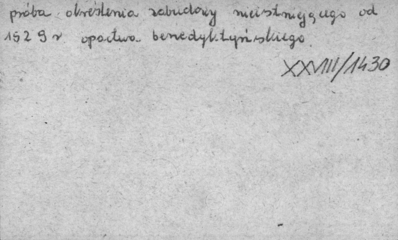 próba określenia zabudowy nieistniejącego od
1529 r opactwa benedyktyńskiego.
XXVIII/1430